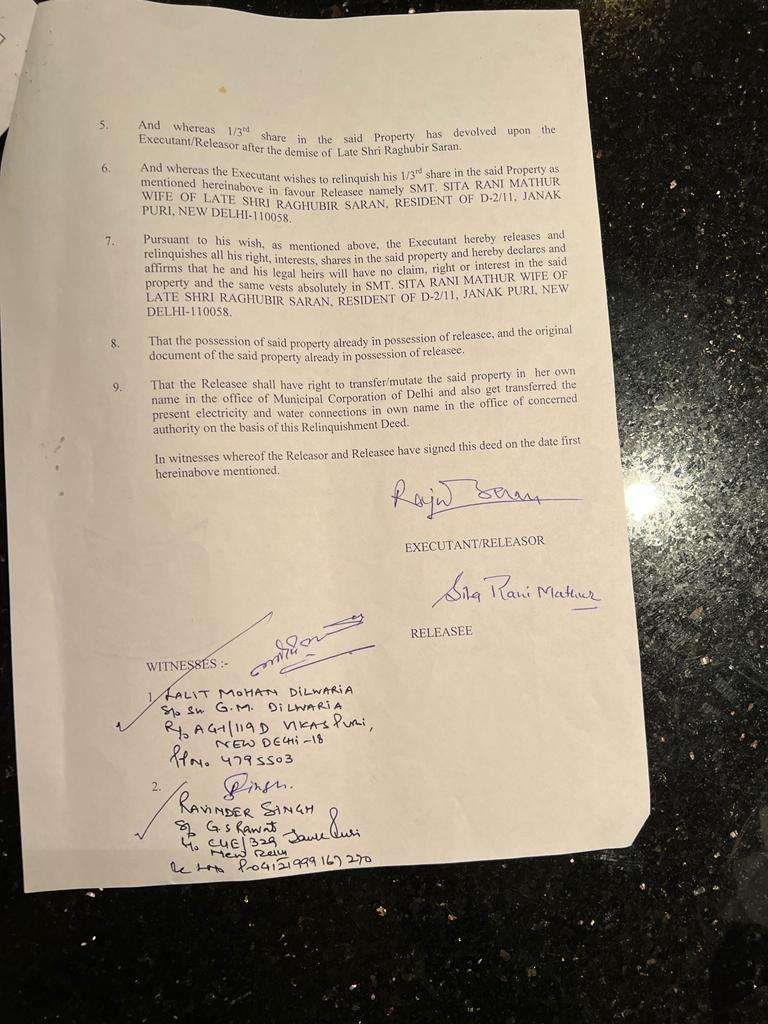 5. And whereas 1/3rd share in the said Property has devolved upon the
Executant/Releasor after the demise of Late Shri Raghubir Saran.
6. And whereas the Executant wishes to relinquish his 1/3rd share in the said Property as
mentioned hereinabove in favour Releasee namely SMT. SITA RANI MATHUR
WIFE OF LATE SHRI RAGHUBIR SARAN, RESIDENT OF D-2/11, JANAK
PURI, NEW DELHI-110058.
7. Pursuant to his wish, as mentioned above, the Executant hereby releases and
relinquishes all his right, interests, shares in the said property and hereby declares and
affirms that he and his legal heirs will have no claim, right or interest in the said
property and the same vests absolutely in SMT. SITA RANI MATHUR WIFE OF
LATE SHRI RAGHUBIR SARAN, RESIDENT OF D-2/11, JANAK PURI, NEW
DELHI-110058.
8. That the possession of said property already in possession of releasee, and the original
document of the said property already in possession of releasee.
9. That the Releasee shall have right to transfer/mutate the said property in her own
name in the office of Municipal Corporation of Delhi and also get transferred the
present electricity and water connections in own name in the office of concerned
authority on the basis of this Relinquishment Deed.
In witnesses whereof the Releasor and Releasee have signed this deed on the date first
hereinabove mentioned.
EXECUTANT/RELEASOR
Sita Rani Mathur
RELEASEE
WITNESSES :-
1. LALIT MOHAN DILWARIA
S/o Sh. G.M. DILWARIA
R/o AG1/119 D VIKAS PURI,
NEW DELHI-18
4795503
2. Singh.
RAVINDER SINGH
S/o G.S Rawat
New Delhi